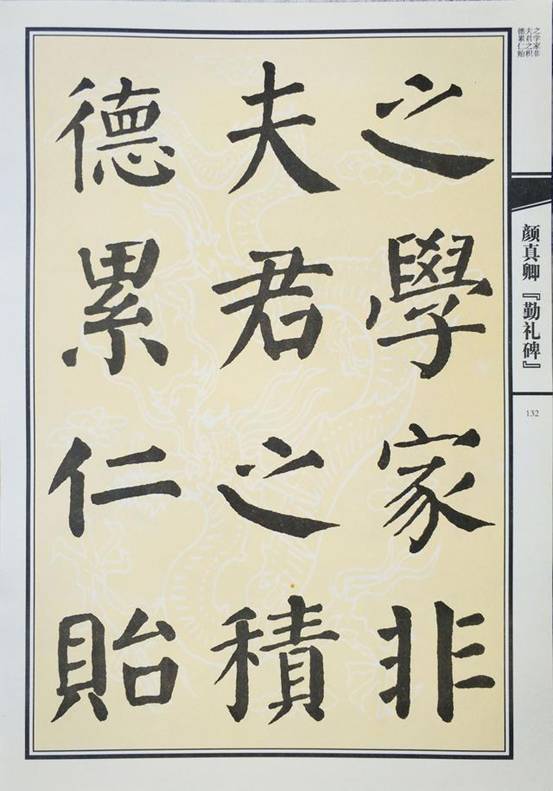 之學家非
夫君之積
德累仁貽
之学家非
夫君之积
德累仁贻
颜真卿『勤礼碑』
132